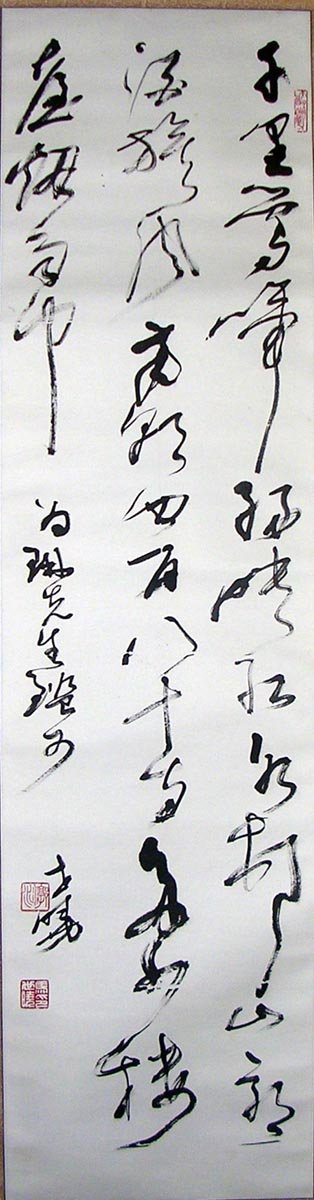 千里鶯啼綠映紅水村山郭
酒旗風南朝四百八十寺多少樓
臺烟雨中
先生鑒